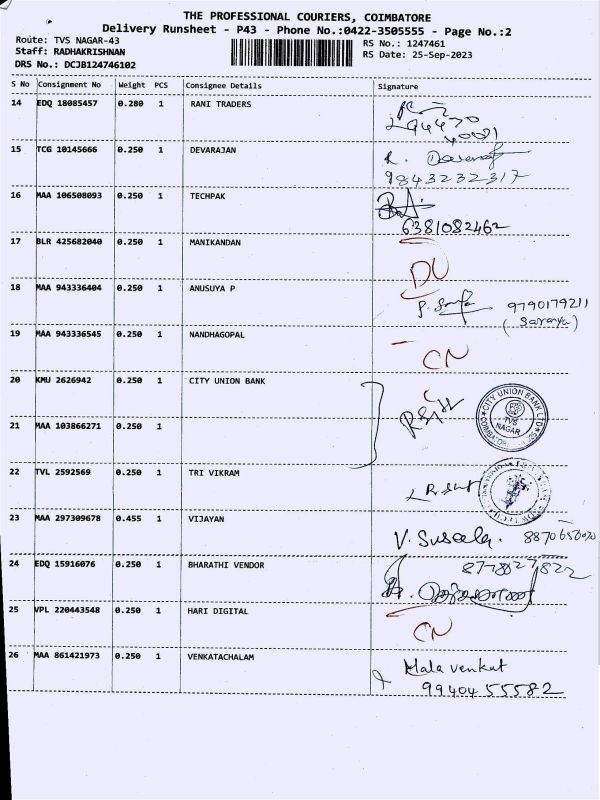 THE PROFESSIONAL COURIERS, COIMBATORE
Delivery Runsheet - P43 - Phone No.:0422-3505555 - Page No.:2
Route: TVS NAGAR-43
RS No.: 1247461
Staff: RADHAKRISHNAN
RS Date: 25-Sep-2023
DRS No.: DCJB124746102
S No Consignment No Weight PCS Consignee Details Signature
14 EDQ 18085457 0.280 1 RANI TRADERS
15 TCG 10145666 0.250 1 DEVARAJAN
9843232317
16 MAA 106508093 0.250 1 TECHPAK
6381082462
17 BLR 425682040 0.250 1 MANIKANDAN
DU
18 MAA 943336404 0.250 1 ANUSUYA P
9790179211
(Saranya)
19 MAA 943336545 0.250 1 NANDHAGOPAL
CN
20 KMU 2626942 0.250 1 CITY UNION BANK
CITY UNION BANK LTD
TVS
NAGAR
21 MAA 103866271 0.250 1
22 TVL 2592569 0.250 1 TRI VIKRAM
23 MAA 297309678 0.455 1 VIJAYAN
V. Suseela.
24 EDQ 15916076 0.250 1 BHARATHI VENDOR
25 VPL 220443548 0.250 1 HARI DIGITAL
CN
26 MAA 861421973 0.250 1 VENKATACHALAM
Mala venkat
99404 55582